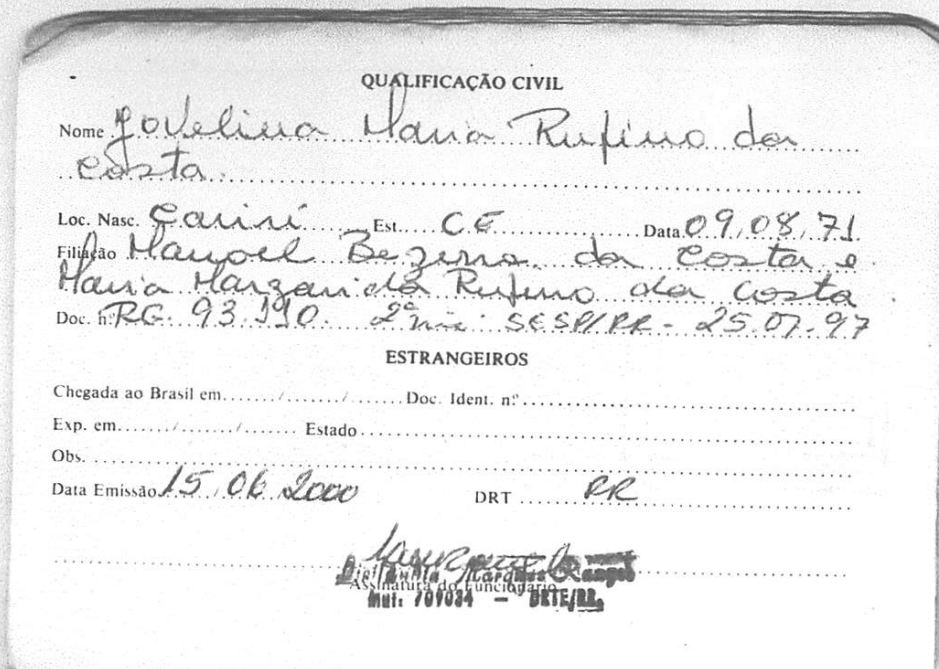 QUALIFICAÇÃO CIVIL
Nome Jovelina Maria Rufino da
Costa
Loc. Nasc. Cariri Est. CE Data 09,08,71
Filiação Manoel Bezerra da Costa e
Maria Margarida Rufino da Costa
Doc. nº RG. 93.190. 2ª via SESP/RR - 25.07.97
ESTRANGEIROS
Chegada ao Brasil em ......./......./....... Doc. Ident. nº
Exp. em ......./......./....... Estado
Obs.
Data Emissão 15,06,2000 DRT RR
Assinatura do Funcionário
Mat: 709034 — DRTE/RR.